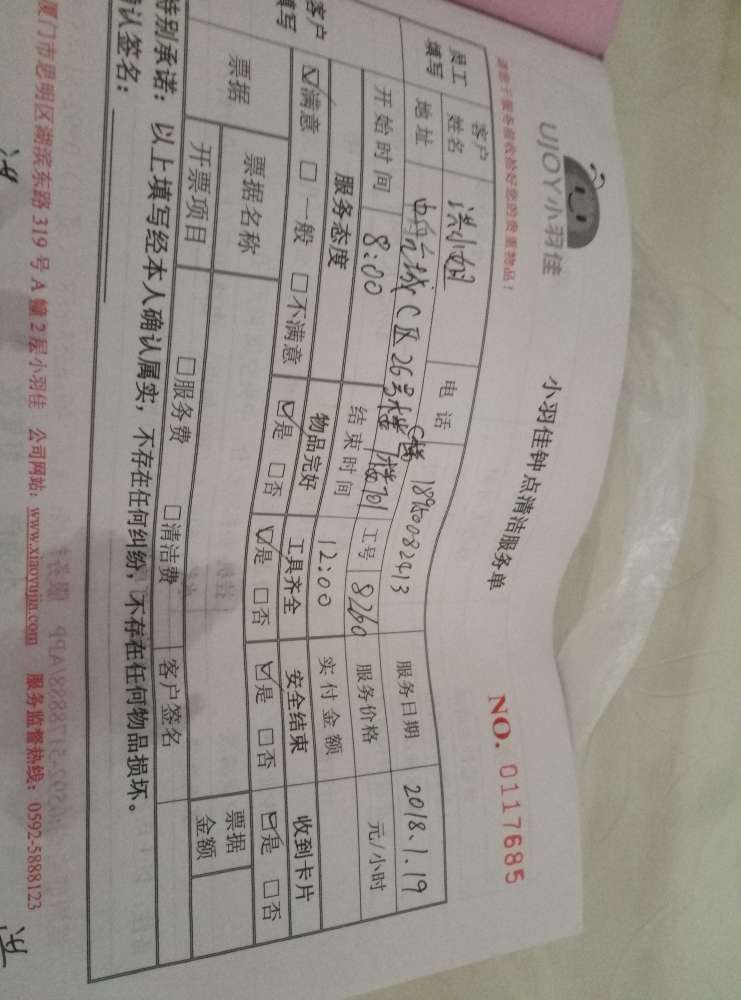 UJOY小羽佳
小羽佳钟点清洁服务单
请您于服务前收拾好您的贵重物品!
NO. 0117685
员工填写 客户姓名 洪小姐 电话 服务日期 2018.1.19
地址 C区26号楼 工号 8260 服务价格 元/小时
开始时间 8:00 结束时间 12:00 实付金额
客户填写 服务态度 物品完好 工具齐全 安全结束 收到卡片
☑满意 □一般 □不满意 ☑是 □否 ☑是 □否 ☑是 □否 ☑是 □否
票据 票据名称 票据金额
开票项目 □服务费 □清洁费 客户签名
特别承诺:以上填写经本人确认属实,不存在任何纠纷,不存在任何物品损坏。
确认签名:
厦门市思明区湖滨东路319号A幢2层小羽佳 公司网站:www.xiaoyujia.com 服务监督热线:0592-5888123